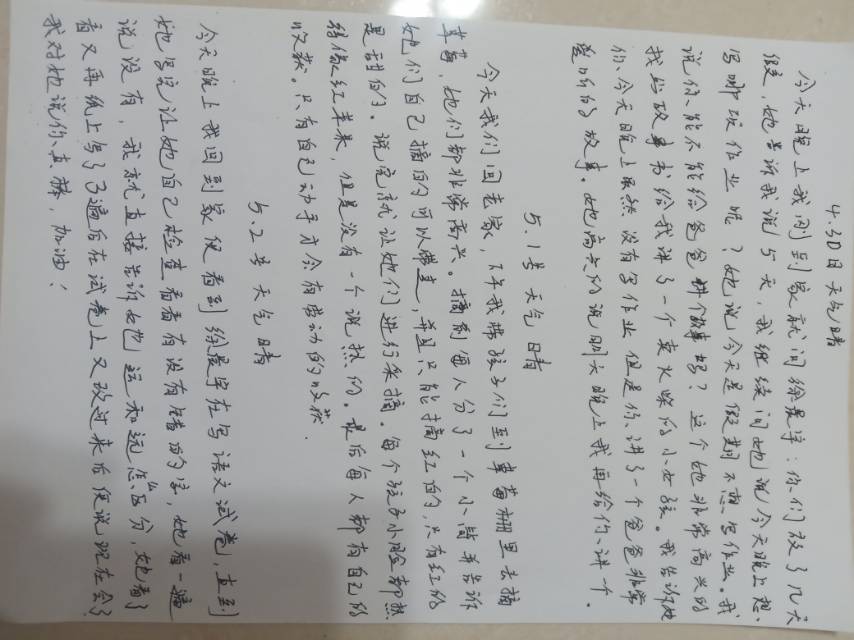 4.30日 天气晴
今天晚上我刚到家就问徐晨宇:你们放了几天
假,她告诉我说5天,我继续问她说今天晚上想
写哪项作业呢?她说今天是假期不想写作业。我
说你能不能给爸爸讲个故事呀?这个她非常高兴的
找出故事书给我讲了一个卖火柴的小女孩。我告诉她
你今天晚上虽然没有写作业但是你讲了一个爸爸非常
爱听的故事。她高兴的说明天晚上我再给你讲一个。
5.1号 天气晴
今天我们回老家,下午我带孩子们到草莓棚里去摘
草莓,她们都非常高兴。摘前每人分了一个小筐并告诉
她们自己摘的可以带走,并且只能摘红的,只有红的
是甜的。说完就让她们进行采摘。每个孩子小脸都热
得像红苹果,但是没有一个说热的。最后每人都有自己的
收获。只有自己动手才会有劳动的收获.
5.2号 天气晴
今天晚上我回到家便看到徐晨宇在写语文试卷,直到
她写完让她自己检查看看有没有错的字,她看一遍
说没有,我就直接告诉她运和远怎么区分,她看了
看又再纸上写了3遍后在试卷上又改过来后便说现在会了
我对她说你真棒,加油!